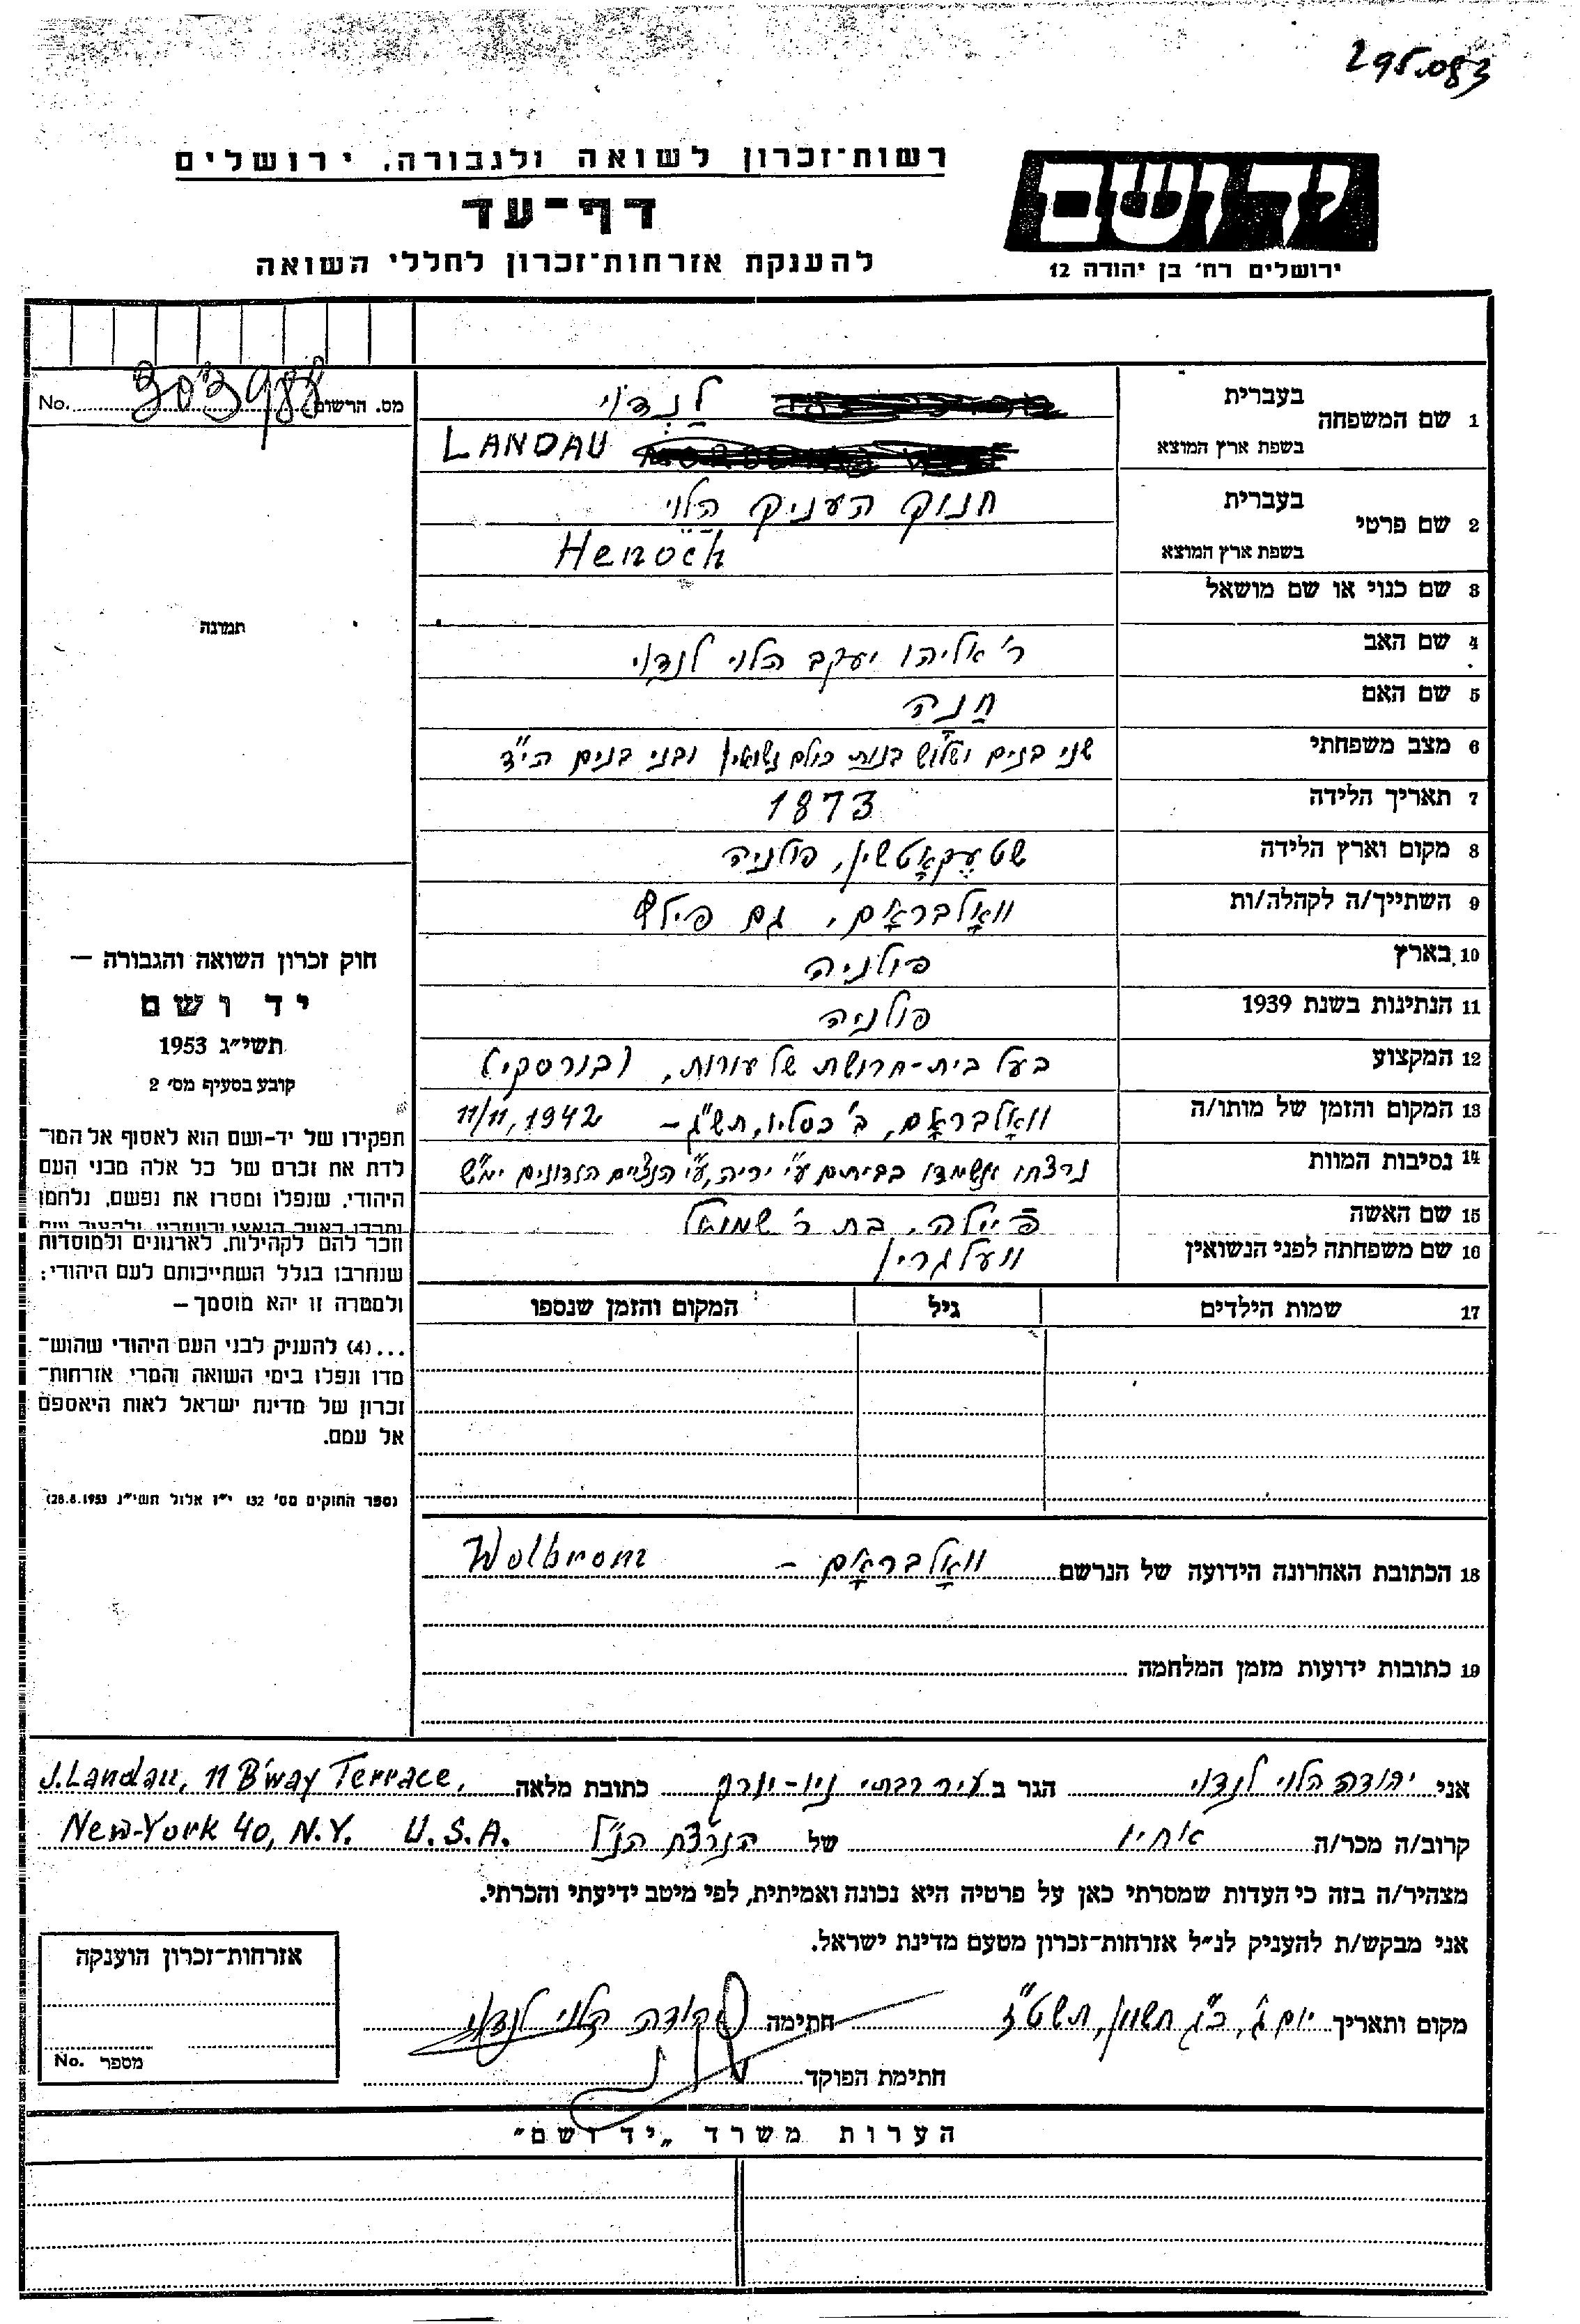 295.083
רשות־זכרון לשואה ולגבורה, ירושלים
יד ושם
דף־עד
להענקת אזרחות־זכרון לחללי השואה
ירושלים רח׳ בן יהודה 12
מס. הרשום 303988 No.
1 שם המשפחה בעברית לַנְדוי
בשפת ארץ המוצא LANDAU
2 שם פרטי בעברית חנוך העניך הלוי
בשפת ארץ המוצא Henoch
3 שם כנוי או שם מושאל
תמונה
4 שם האב ר׳ אליהו יעקב הלוי לנדוי
5 שם האם חַנָה
6 מצב משפחתי שני בנים ושלוש בנות כולם נשואין ובני בנים הי״ד
7 תאריך הלידה 1873
8 מקום וארץ הלידה שטשעקאָטשין, פולניה
9 השתייך/ה לקהלה/ות וואָלבראָם, גם פילץ
10 בארץ פולניה
11 הנתינות בשנת 1939 פולניה
12 המקצוע בעל בית-חרושת של עורות, (בורסקי)
13 המקום והזמן של מותו/ה וואָלבראָם, ב׳ כסליו, תש״ג – 11/11, 1942
14 נסיבות המוות נרצחו ונשמדו בביתם ע״י יריה, ע״י הנאצים הזדונים ימ״ש
15 שם האשה פיילה, בת ר׳ שמואל
16 שם משפחתה לפני הנשואין וועלגרין
17 שמות הילדים גיל המקום והזמן שנספו
חוק זכרון השואה והגבורה —
יד ושם
תשי״ג 1953
קובע בסעיף מס׳ 2
תפקידו של יד-ושם הוא לאסוף אל המו־
לדת את זכרם של כל אלה מבני העם
היהודי, שנפלו ומסרו את נפשם, נלחמו
ומרדו באויב הנאצי ובעוזריו, ולהציב שם
וזכר להם לקהילות, לארגונים ולמוסדות
שנחרבו בגלל השתייכותם לעם היהודי;
ולמטרה זו יהא מוסמך —
...(4) להעניק לבני העם היהודי שהוש־
מדו ונפלו בימי השואה והמרי אזרחות־
זכרון של מדינת ישראל לאות היאספם
אל עמם.
(ספר החוקים מס׳ 132 י״ז אלול תשי״ג 28.8.1953)
18 הכתובת האחרונה הידועה של הנרשם וואָלבראָם – Wolbrom
19 כתובות ידועות מזמן המלחמה
אני יהודה הלוי לנדוי הגר ב עיר רבתי ניו-יורק כתובת מלאה J. Landau, 11 B'way Terrace,
קרוב/ה מכר/ה אחיו של הנרצח הנ״ל New-York 40, N.Y. U.S.A.
מצהיר/ה בזה כי העדות שמסרתי כאן על פרטיה היא נכונה ואמיתית, לפי מיטב ידיעתי והכרתי.
אני מבקש/ת להעניק לנ״ל אזרחות־זכרון מטעם מדינת ישראל.
מקום ותאריך יום ג׳, כ״ג חשוון, תשט״ז חתימה יהודה הלוי לנדוי
חתימת הפוקד
אזרחות־זכרון הוענקה
מספר No.
הערות משרד „יד ושם״